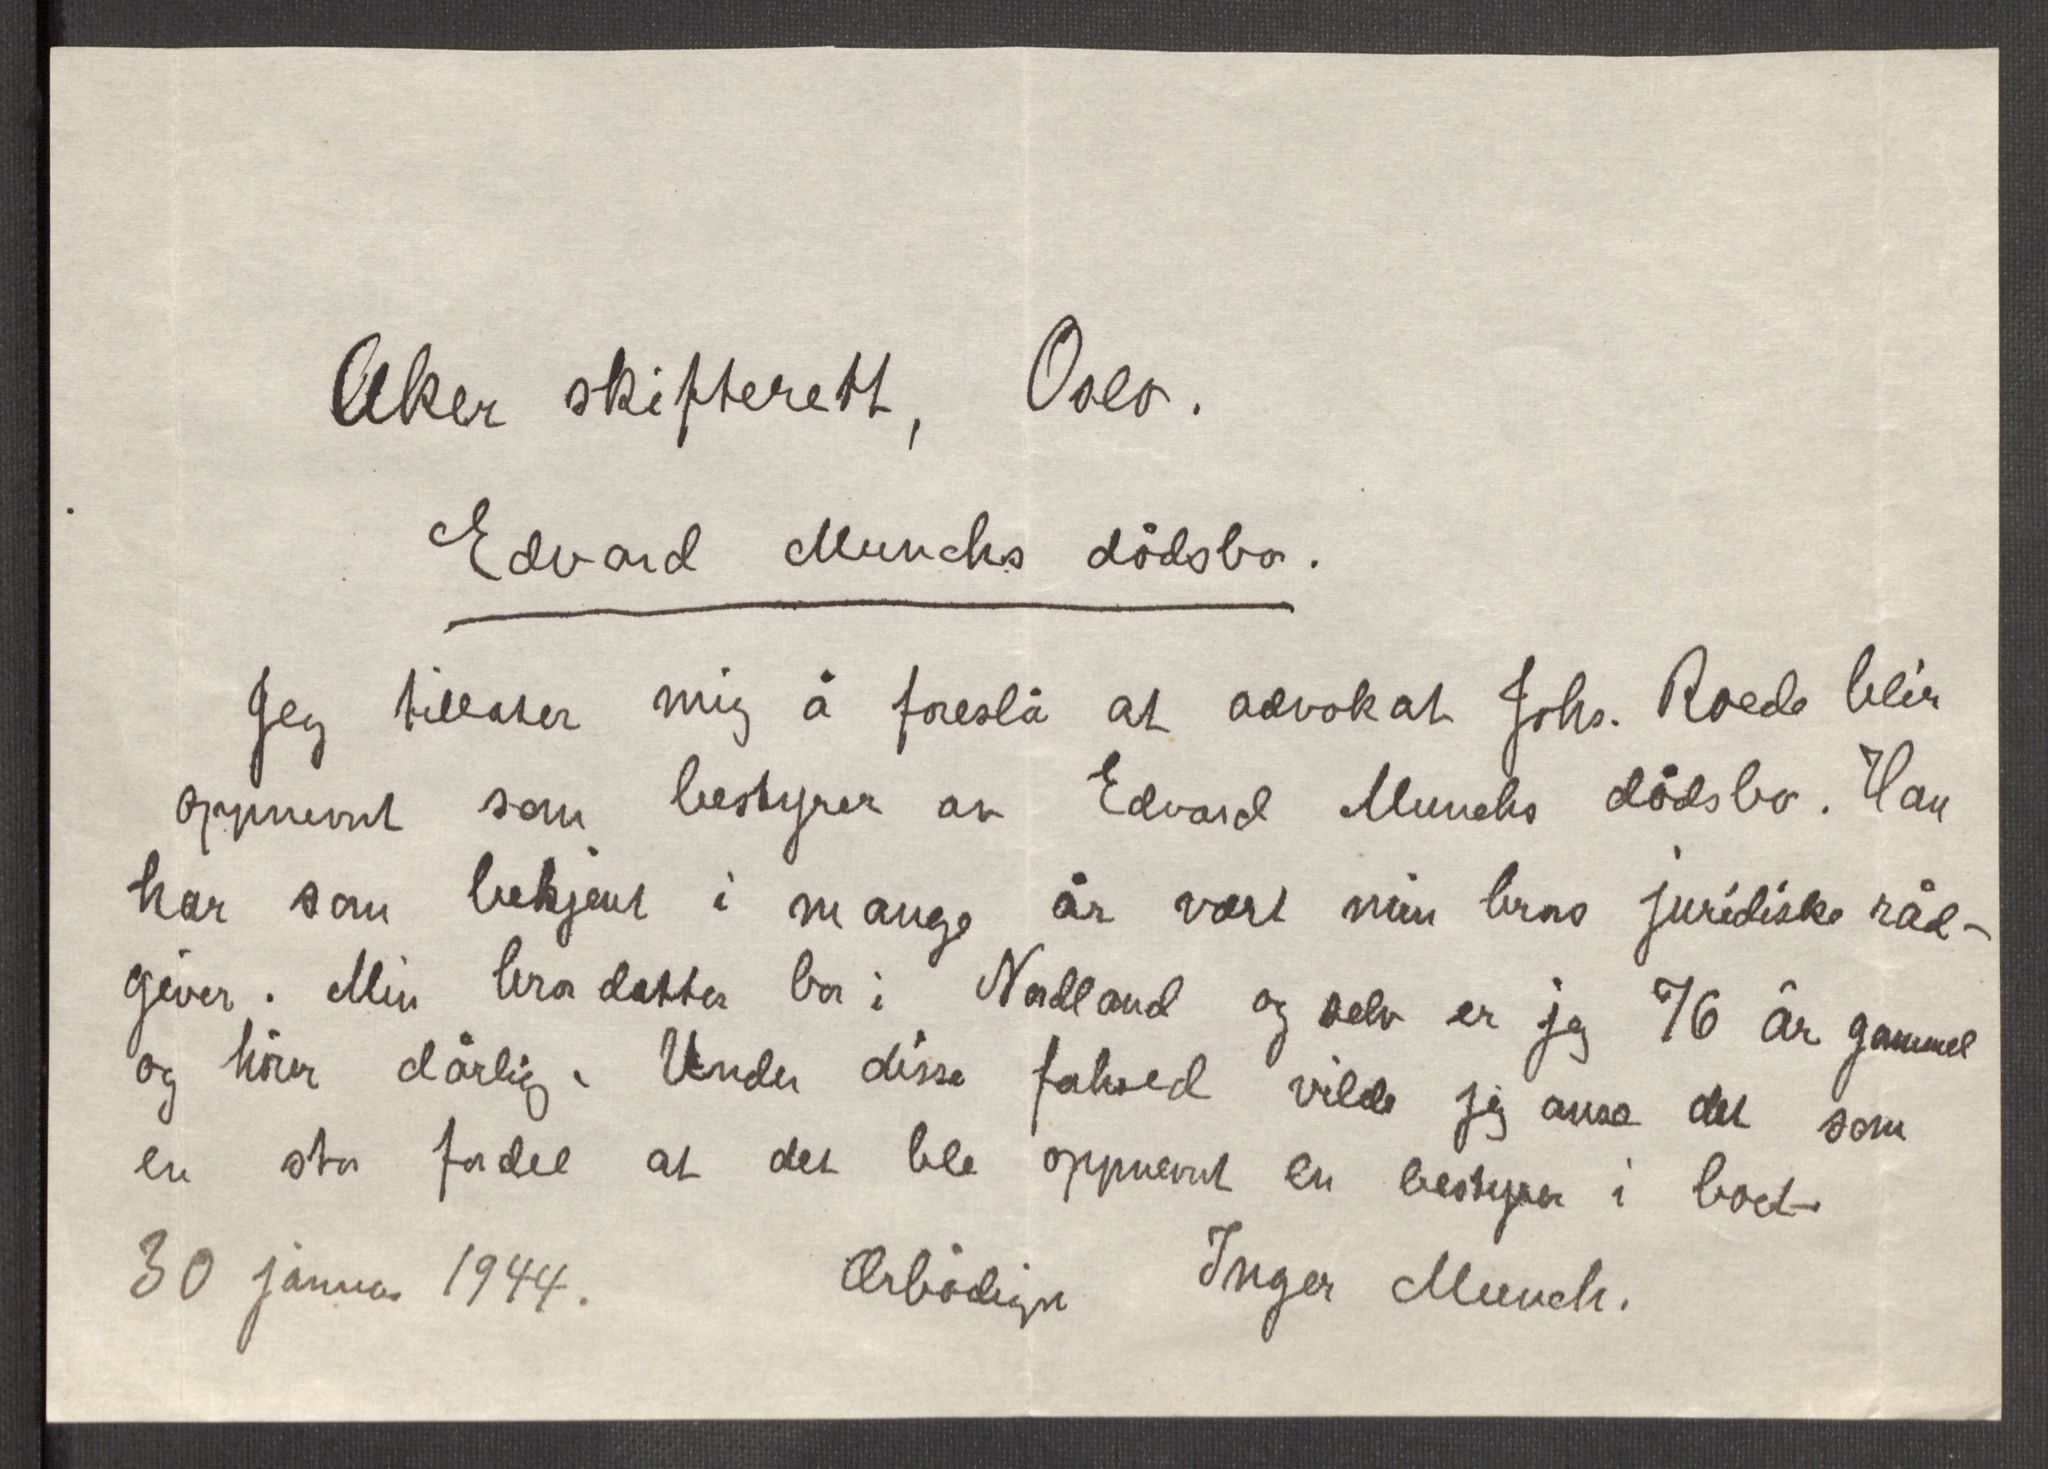 Aker skifterett, Oslo.
Edvard Munchs dödsbo.
Jeg tillater mig å foreslå at advokat Johs. Roede blir
oppnevnt som bestyrer av Edvard Munchs dödsbo. Han
har som bekjent i mange år vært min brors juridiske råd-
giver. Min brordatter bor i Nordland og selv er jeg 76 år gammel
og hörer dårlig. Under disse forhold vilde jeg anse det som
en stor fordel at det ble oppnevnt en bestyrer i boet.
30 januar 1944. Ærbödigst Inger Munch.